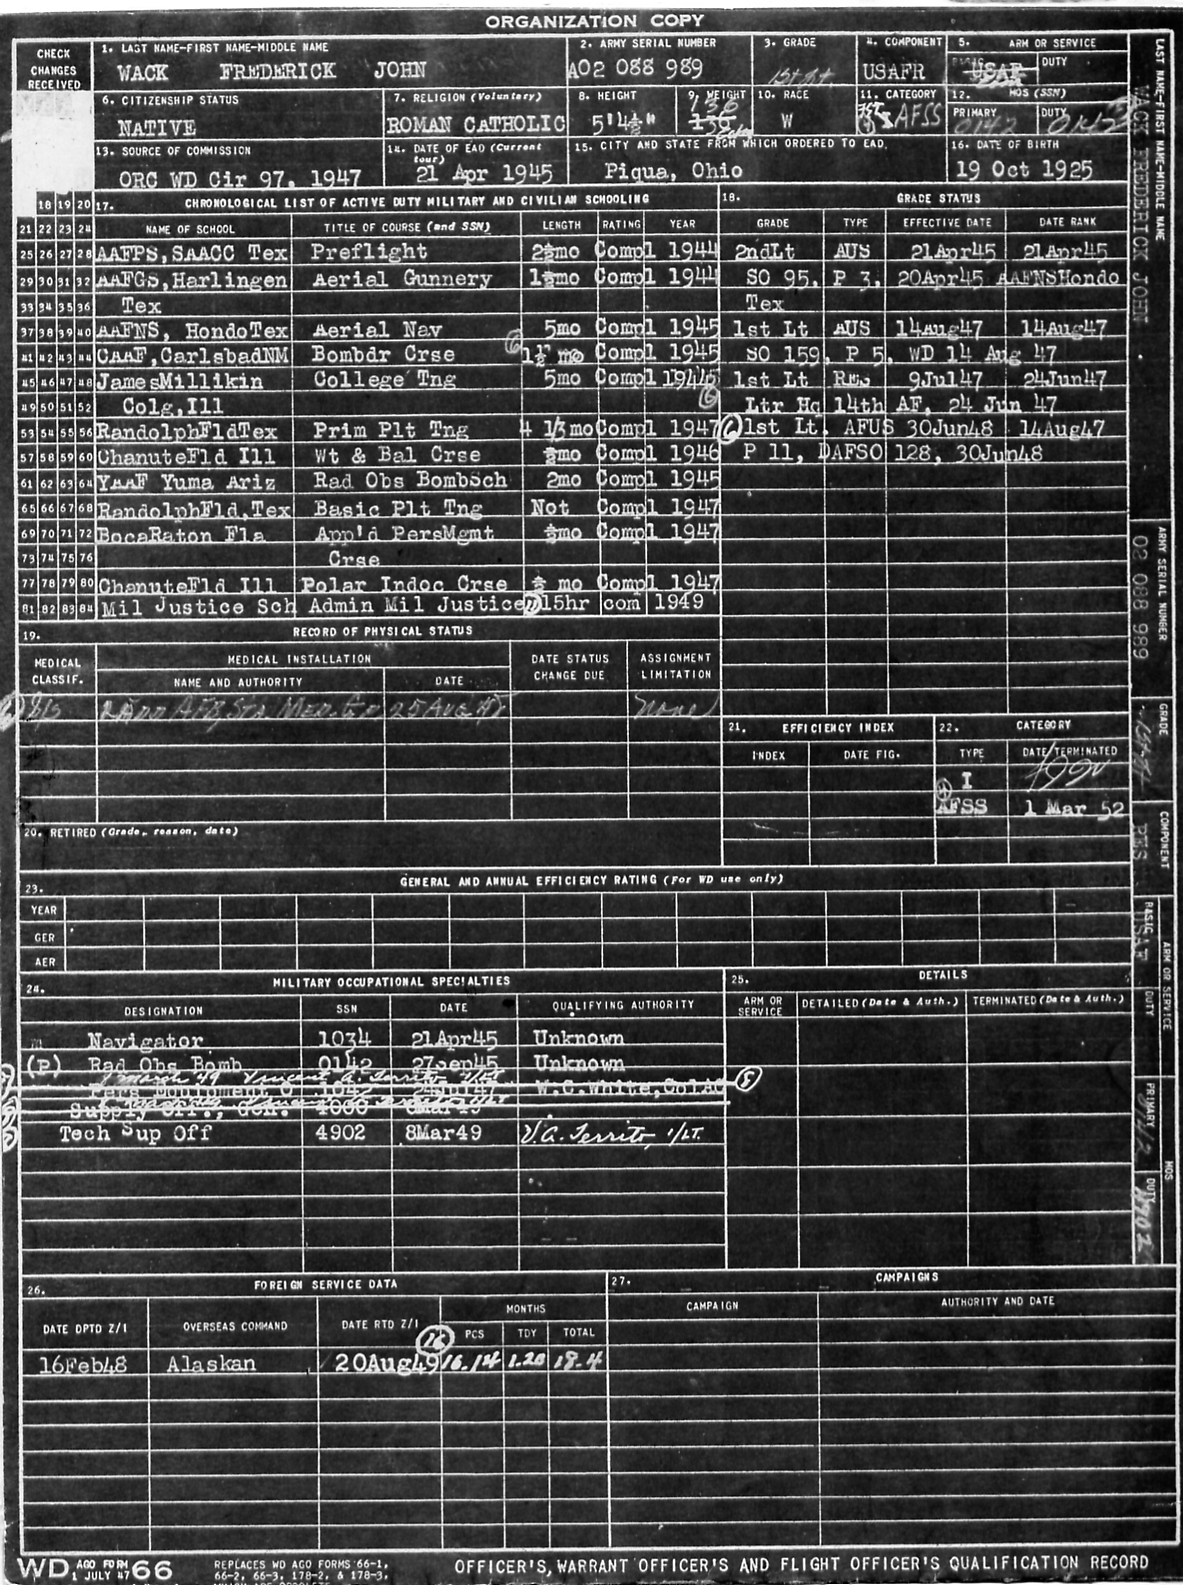 ORGANIZATION COPY
CHECK CHANGES RECEIVED
1. LAST NAME-FIRST NAME-MIDDLE NAME
WACK FREDERICK JOHN
2. ARMY SERIAL NUMBER
AO2 088 989
3. GRADE
1st Lt
4. COMPONENT
USAFR
5. ARM OR SERVICE
USAF
DUTY
6. CITIZENSHIP STATUS
NATIVE
7. RELIGION (Voluntary)
ROMAN CATHOLIC
8. HEIGHT
5'4½"
9. WEIGHT
136
10. RACE
W
11. CATEGORY
AFSS
12. MOS (SSN)
PRIMARY
0142
DUTY
13. SOURCE OF COMMISSION
ORC WD Cir 97, 1947
14. DATE OF EAD (Current tour)
21 Apr 1945
15. CITY AND STATE FROM WHICH ORDERED TO EAD.
Piqua, Ohio
16. DATE OF BIRTH
19 Oct 1925
18 19 20 17. CHRONOLOGICAL LIST OF ACTIVE DUTY MILITARY AND CIVILIAN SCHOOLING
21 22 23 24 NAME OF SCHOOL TITLE OF COURSE (and SSN) LENGTH RATING YEAR
25 26 27 28 AAFPS, SAACC Tex Preflight 2½mo Compl 1944
29 30 31 32 AAFGS, Harlingen Aerial Gunnery 1½mo Compl 1944
33 34 35 36 Tex
37 38 39 40 AAFNS, HondoTex Aerial Nav 5mo Compl 1945
41 42 43 44 CAAF, CarlsbadNM Bombdr Crse 1½ mo Compl 1945
45 46 47 48 JamesMillikin College Tng 5mo Compl 1944
49 50 51 52 Colg, Ill
53 54 55 56 RandolphFldTex Prim Plt Tng 4 1/3 mo Compl 1947
57 58 59 60 ChanuteFld Ill Wt & Bal Crse ½mo Compl 1946
61 62 63 64 YAAF Yuma Ariz Rad Obs BombSch 2mo Compl 1945
65 66 67 68 RandolphFld, Tex Basic Plt Tng Not Compl 1947
69 70 71 72 BocaRaton Fla App'd PersMgmt ½mo Compl 1947
73 74 75 76 Crse
77 78 79 80 ChanuteFld Ill Polar Indoc Crse ½ mo Compl 1947
81 82 83 84 Mil Justice Sch Admin Mil Justice 15hr com 1949
18. GRADE STATUS
GRADE TYPE EFFECTIVE DATE DATE RANK
2ndLt AUS 21Apr45 21Apr45
SO 95, P 3, 20Apr45 AAFNSHondo
Tex
1st Lt AUS 14Aug47 14Aug47
SO 159, P 5, WD 14 Aug 47
1st Lt Res 9Jul47 24Jun47
Ltr Hq 14th AF, 24 Jun 47
(6) 1st Lt, AFUS 30Jun48 14Aug47
P 11, DAFSO 128, 30Jun48
19. RECORD OF PHYSICAL STATUS
MEDICAL CLASSIF. MEDICAL INSTALLATION DATE STATUS CHANGE DUE ASSIGNMENT LIMITATION
NAME AND AUTHORITY DATE
25 Aug None
20. RETIRED (Grade, reason, date)
21. EFFICIENCY INDEX
INDEX DATE FIG.
22. CATEGORY
TYPE DATE TERMINATED
I
AFSS 1 Mar 52
23. GENERAL AND ANNUAL EFFICIENCY RATING (For WD use only)
YEAR
GER
AER
24. MILITARY OCCUPATIONAL SPECIALTIES
DESIGNATION SSN DATE QUALIFYING AUTHORITY
Navigator 1034 21Apr45 Unknown
(P) Rad Obs Bomb 0142 27Sep45 Unknown
8 March 49 Vincent A. Territo 1/Lt
W.C.White, ColAC
Supply Off., Gen. 4000 8Mar49
Tech Sup Off 4902 8Mar49 V.A. Territo, 1/LT.
25. DETAILS
ARM OR SERVICE DETAILED (Date & Auth.) TERMINATED (Date & Auth.)
26. FOREIGN SERVICE DATA
DATE DPTD Z/I OVERSEAS COMMAND DATE RTD Z/I MONTHS
PCS TDY TOTAL
(16)
16Feb48 Alaskan 20Aug49 16.14 1.20 18.4
27. CAMPAIGNS
CAMPAIGN AUTHORITY AND DATE
LAST NAME-FIRST NAME-MIDDLE NAME
WACK FREDERICK JOHN
ARMY SERIAL NUMBER
O2 088 989
GRADE
COMPONENT
RES
ARM OR SERVICE
BASIC
USAF
DUTY
MOS
PRIMARY
DUTY
4902
WD AGO FORM 66
1 JULY 47
REPLACES WD AGO FORMS 66-1,
66-2, 66-3, 178-2, & 178-3,
OFFICER'S, WARRANT OFFICER'S AND FLIGHT OFFICER'S QUALIFICATION RECORD